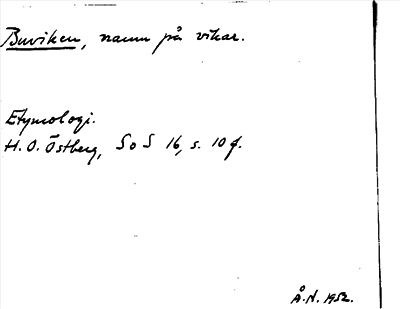 Buviken, namn på vikar.
Etymologi.
H. O. Östberg, S o S 16, s. 10 f.
Å. N. 1952.